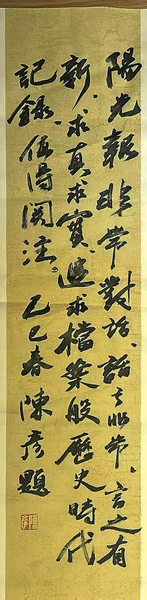 陽光報非常對話，話之非常，言之有
新，求真求實，迹求檔案般歷史時代
記錄，值得關注。乙巳春陳彥題